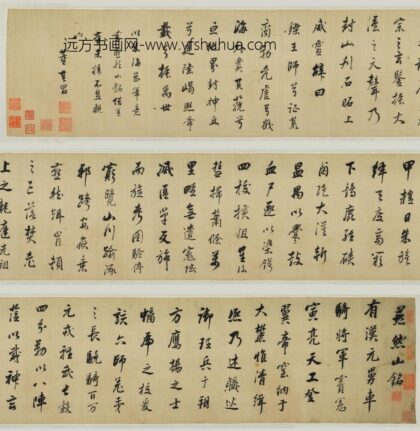 远方书画网：www.yfshuhua.com
宗之玄靈振大
漢之天聲乃
封山刊石昭上
威靈辭曰
鑠王師兮征荒
裔勦虐兮截
海外夐其邈兮
亘地界封神丘
兮建隆嵑熙帝
載兮振萬世
以海岳筆意
書燕然山銘
董其昌
甲耀日朱旗
絳天凌高
下鷄鹿經磧
鹵絶大漠斬
温禺以釁鼓
血尸逐以染鍔
四校橫徂星流
彗掃蕭條萬
里野無遺寇域
滅區單反旆
而旋考圖驗傳
窮覽山川踰涿
邪跨安侯乘
燕然躡冒頓
之區落焚老
上之龍庭光祖
燕然山銘
有漢元舅車
騎將軍竇憲
寅亮天工登
翼帝室納于
大麓惟清緝
熙乃述職巡
御理兵于朔
方鷹揚之士
螭虎之校爰
該六師羌
之長驍騎百万
元戎輕武長轂
四分勒以八陣
蒞以威神玄